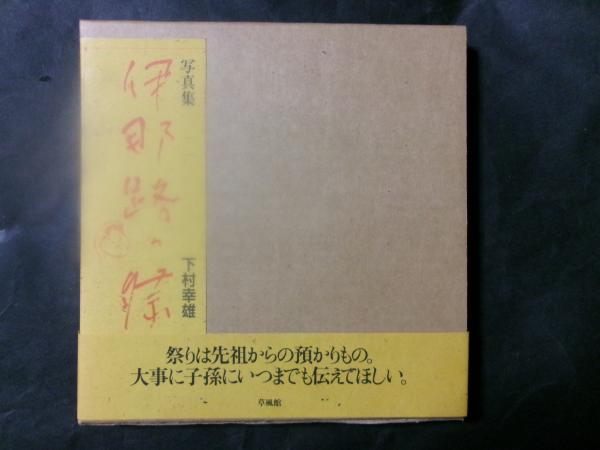 写真集
伊那路の祭
下村幸雄
祭りは先祖からの預かりもの。
大事に子孫にいつまでも伝えてほしい。
草風館